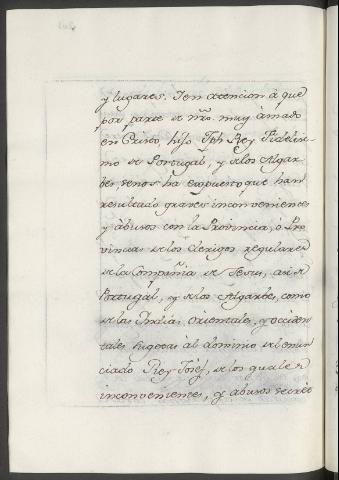 y lugares. Iten atencion à que
por parte de nro. muy àmado
en Cristo, hijo Jph Rey Fidelisi-
mo de Portugal, y de los Algar-
bes, senos ha expuesto que han
resultado graves inconvenientes
y àbusos con la Provincia, ò Pro
vincias de los Clerigos regulares
de la Compañia de Jesus, asi de
Portugal, y de los Algarbes, como
de las Indias orientales, y occiden
tales sugetas àl dominio del enun
ciado Rey Josef, de los quales
inconvenientes, y abusos